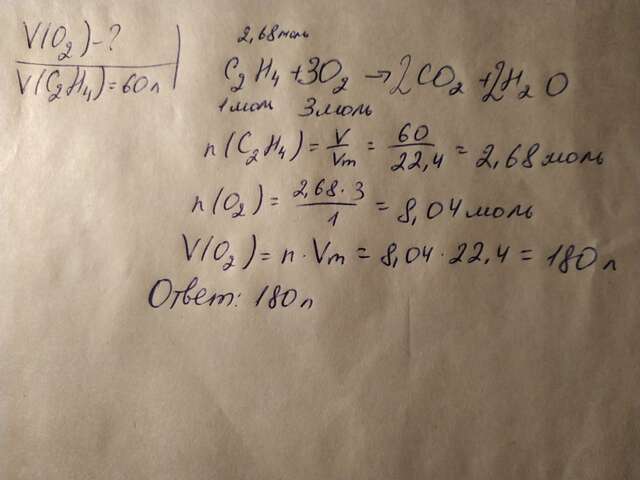 V(O₂) - ?
V(C₂H₄) = 60 л
2,68 моль
C₂H₄ + 3O₂ → 2CO₂ + 2H₂O
1 моль 3 моль
n(C₂H₄) = V/Vm = 60/22,4 = 2,68 моль
n(O₂) = 2,68 · 3/1 = 8,04 моль
V(O₂) = n · Vm = 8,04 · 22,4 = 180 л
Ответ: 180 л